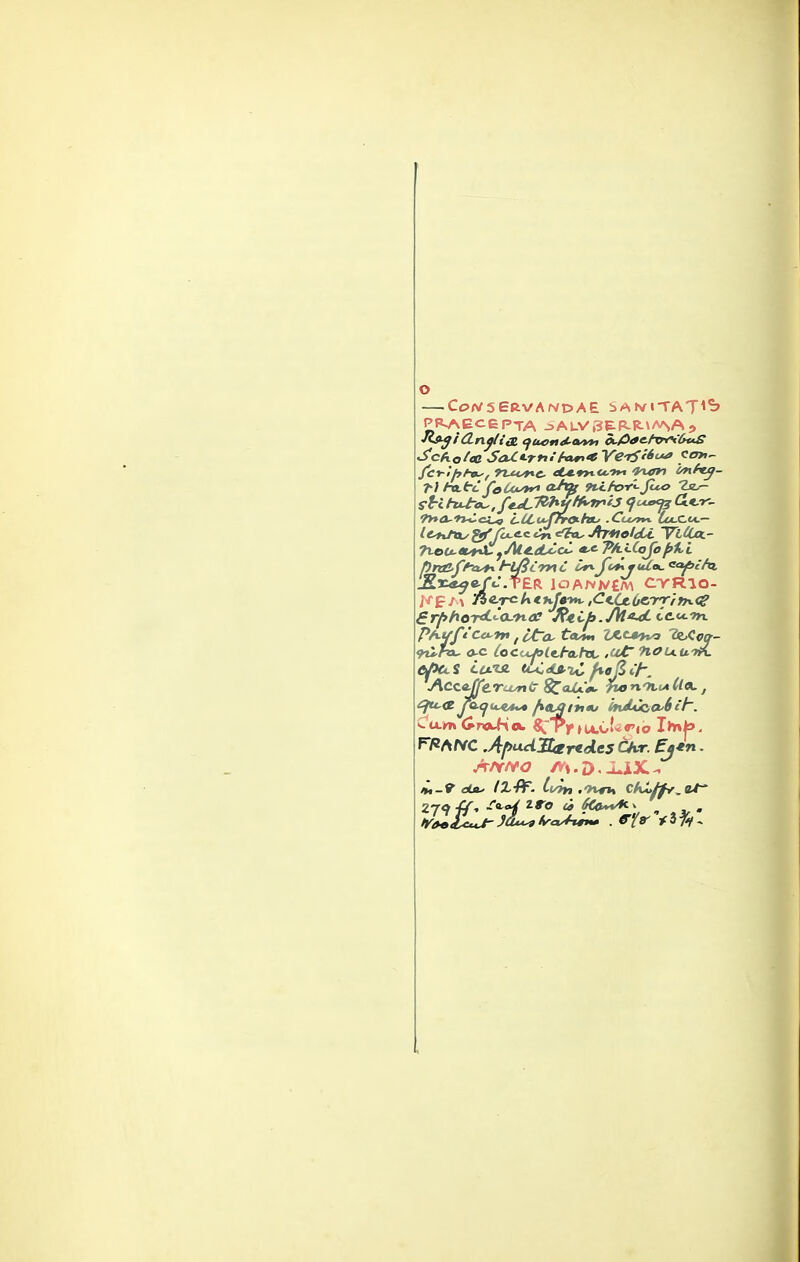 O
— CONSERVANDAE SANITATIS
PRAECEPTA SALVBERRIMA,
Regi Angliæ quondam a Doctoribus
Scholæ Salernitanæ Versibus con-
scripta, nunc demum non integ-
ritati solum atq; nitori suo res-
tituta, sed Rhythmis quoq; Ger-
manicis illustrata. Cum lucu-
lenta, & succincta Arnoldi Villa-
nouani, Medici ac Philosophi
præstantissimi in singula capita
Exegesi. PER IOANNEM CYRIO-
NEM Berckensem, Celeberrimæ
Erphordianæ Reip. Medicum
Physicum, ita tam
ac locupletata, ut nouum
opus iure uideri possit.
Accesserunt & alia nonnulla,
quæ sequens pagina indicabit.
Cum Gratia & Priuilegio Imp.
FRANC. Apud Hæredes Chr. Egen.
ANNO M.D.LIX.
12 ff.
279 ff.